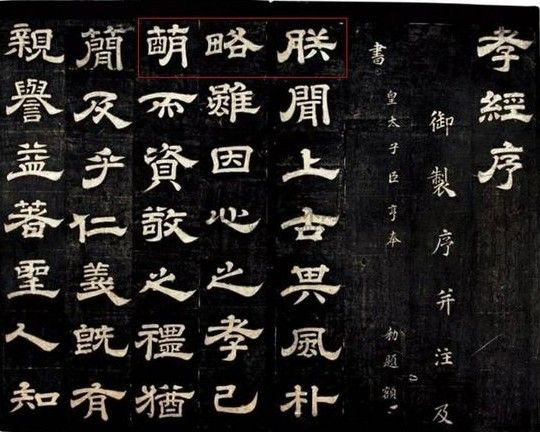 孝經序
御製序并注及
書
皇太子臣亨奉
勅題額
朕聞上古其風朴
略雖因心之孝已
萌而資敬之禮猶
簡及乎仁義既有
親譽益著聖人知